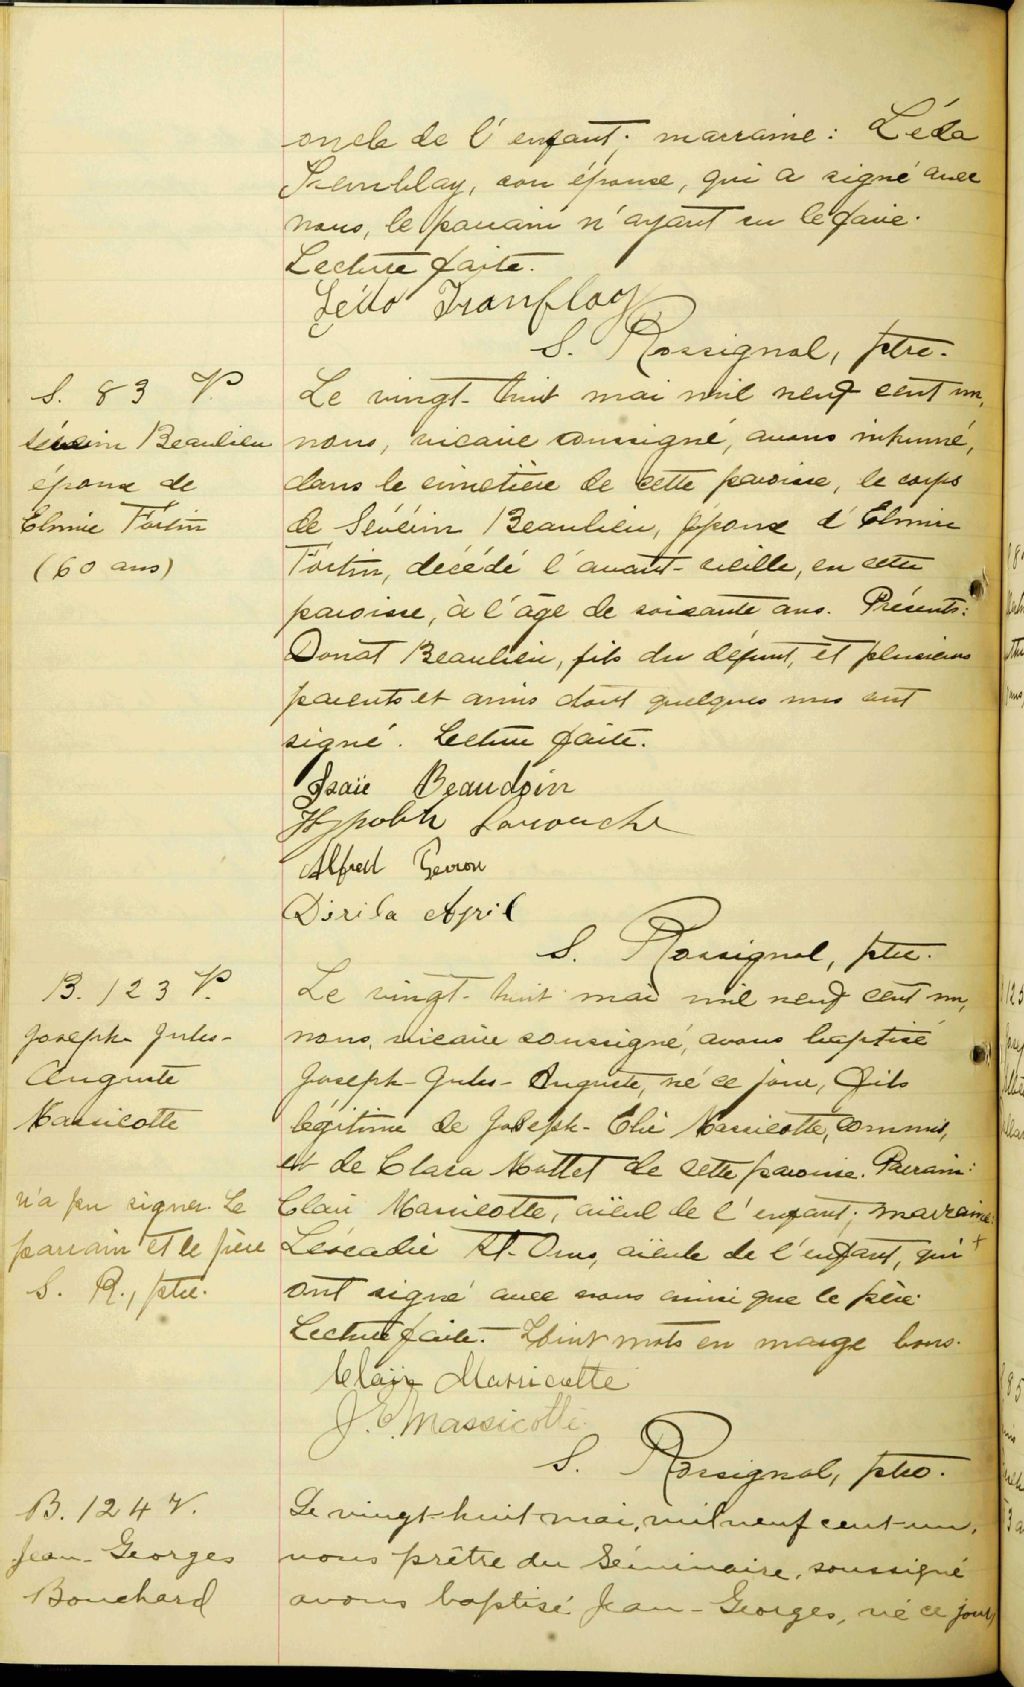 oncle de l'enfant; marraine: Léda
Tremblay, son épouse, qui a signé avec
nous, le parrain n'ayant su le faire.
Lecture faite.
Léda Tremblay
S. Rossignol, ptre.
S. 83 P.
Séverin Beaulieu
époux de
Elmire Fortin
(60 ans)
Le vingt-huit mai mil neuf cent un,
nous, vicaire soussigné, avons inhumé,
dans le cimetière de cette paroisse, le corps
de Sévérin Beaulieu, époux d'Elmire
Fortin, décédé l'avant-veille, en cette
paroisse, à l'âge de soixante ans. Présents:
Donat Beaulieu, fils du défunt, et plusieurs
parents et amis dont quelques uns ont
signé. Lecture faite.
Isaïe Beaudoin
Hypolite Larouche
Alfred
April
S. Rossignol, ptre.
B. 123 P.
Joseph Jules-
Auguste
Massicotte
Le vingt-huit mai mil neuf cent un,
nous, vicaire soussigné, avons baptisé
Joseph-Jules-Auguste, né ce jour, fils
légitime de Joseph-Elie Massicotte, commis,
et de Clara Mottet de cette paroisse. Parrain:
Clair Massicotte, aïeul de l'enfant; marraine:
Léocadie St-Onge, aïeule de l'enfant, qui +
n'a pu signer. Le
parrain et le père
S. R., ptre.
ont signé avec nous ainsi que le père.
Lecture faite. Huit mots en marge bons.
Clair Massicotte
J. E. Massicotte
S. Rossignol, ptre.
B. 124 V.
Jean-Georges
Bouchard
Le vingt-huit mai, mil neuf cent-un,
nous prêtre du Séminaire, soussigné
avons baptisé Jean-Georges, né ce jour,